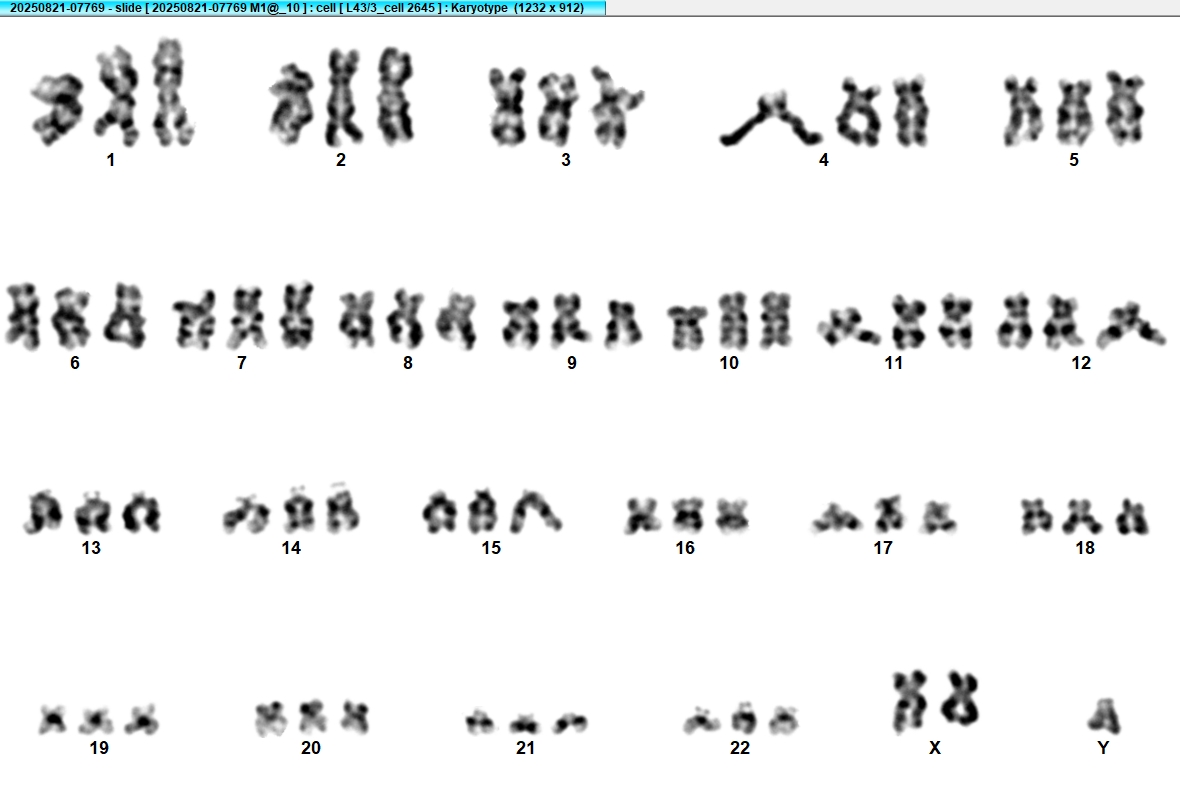 20250821-07769 - slide [ 20250821-07769 M1@_10 ] : cell [ L43/3_cell 2645 ] : Karyotype (1232 x 912)
1 2 3 4 5
6 7 8 9 10 11 12
13 14 15 16 17 18
19 20 21 22 X Y